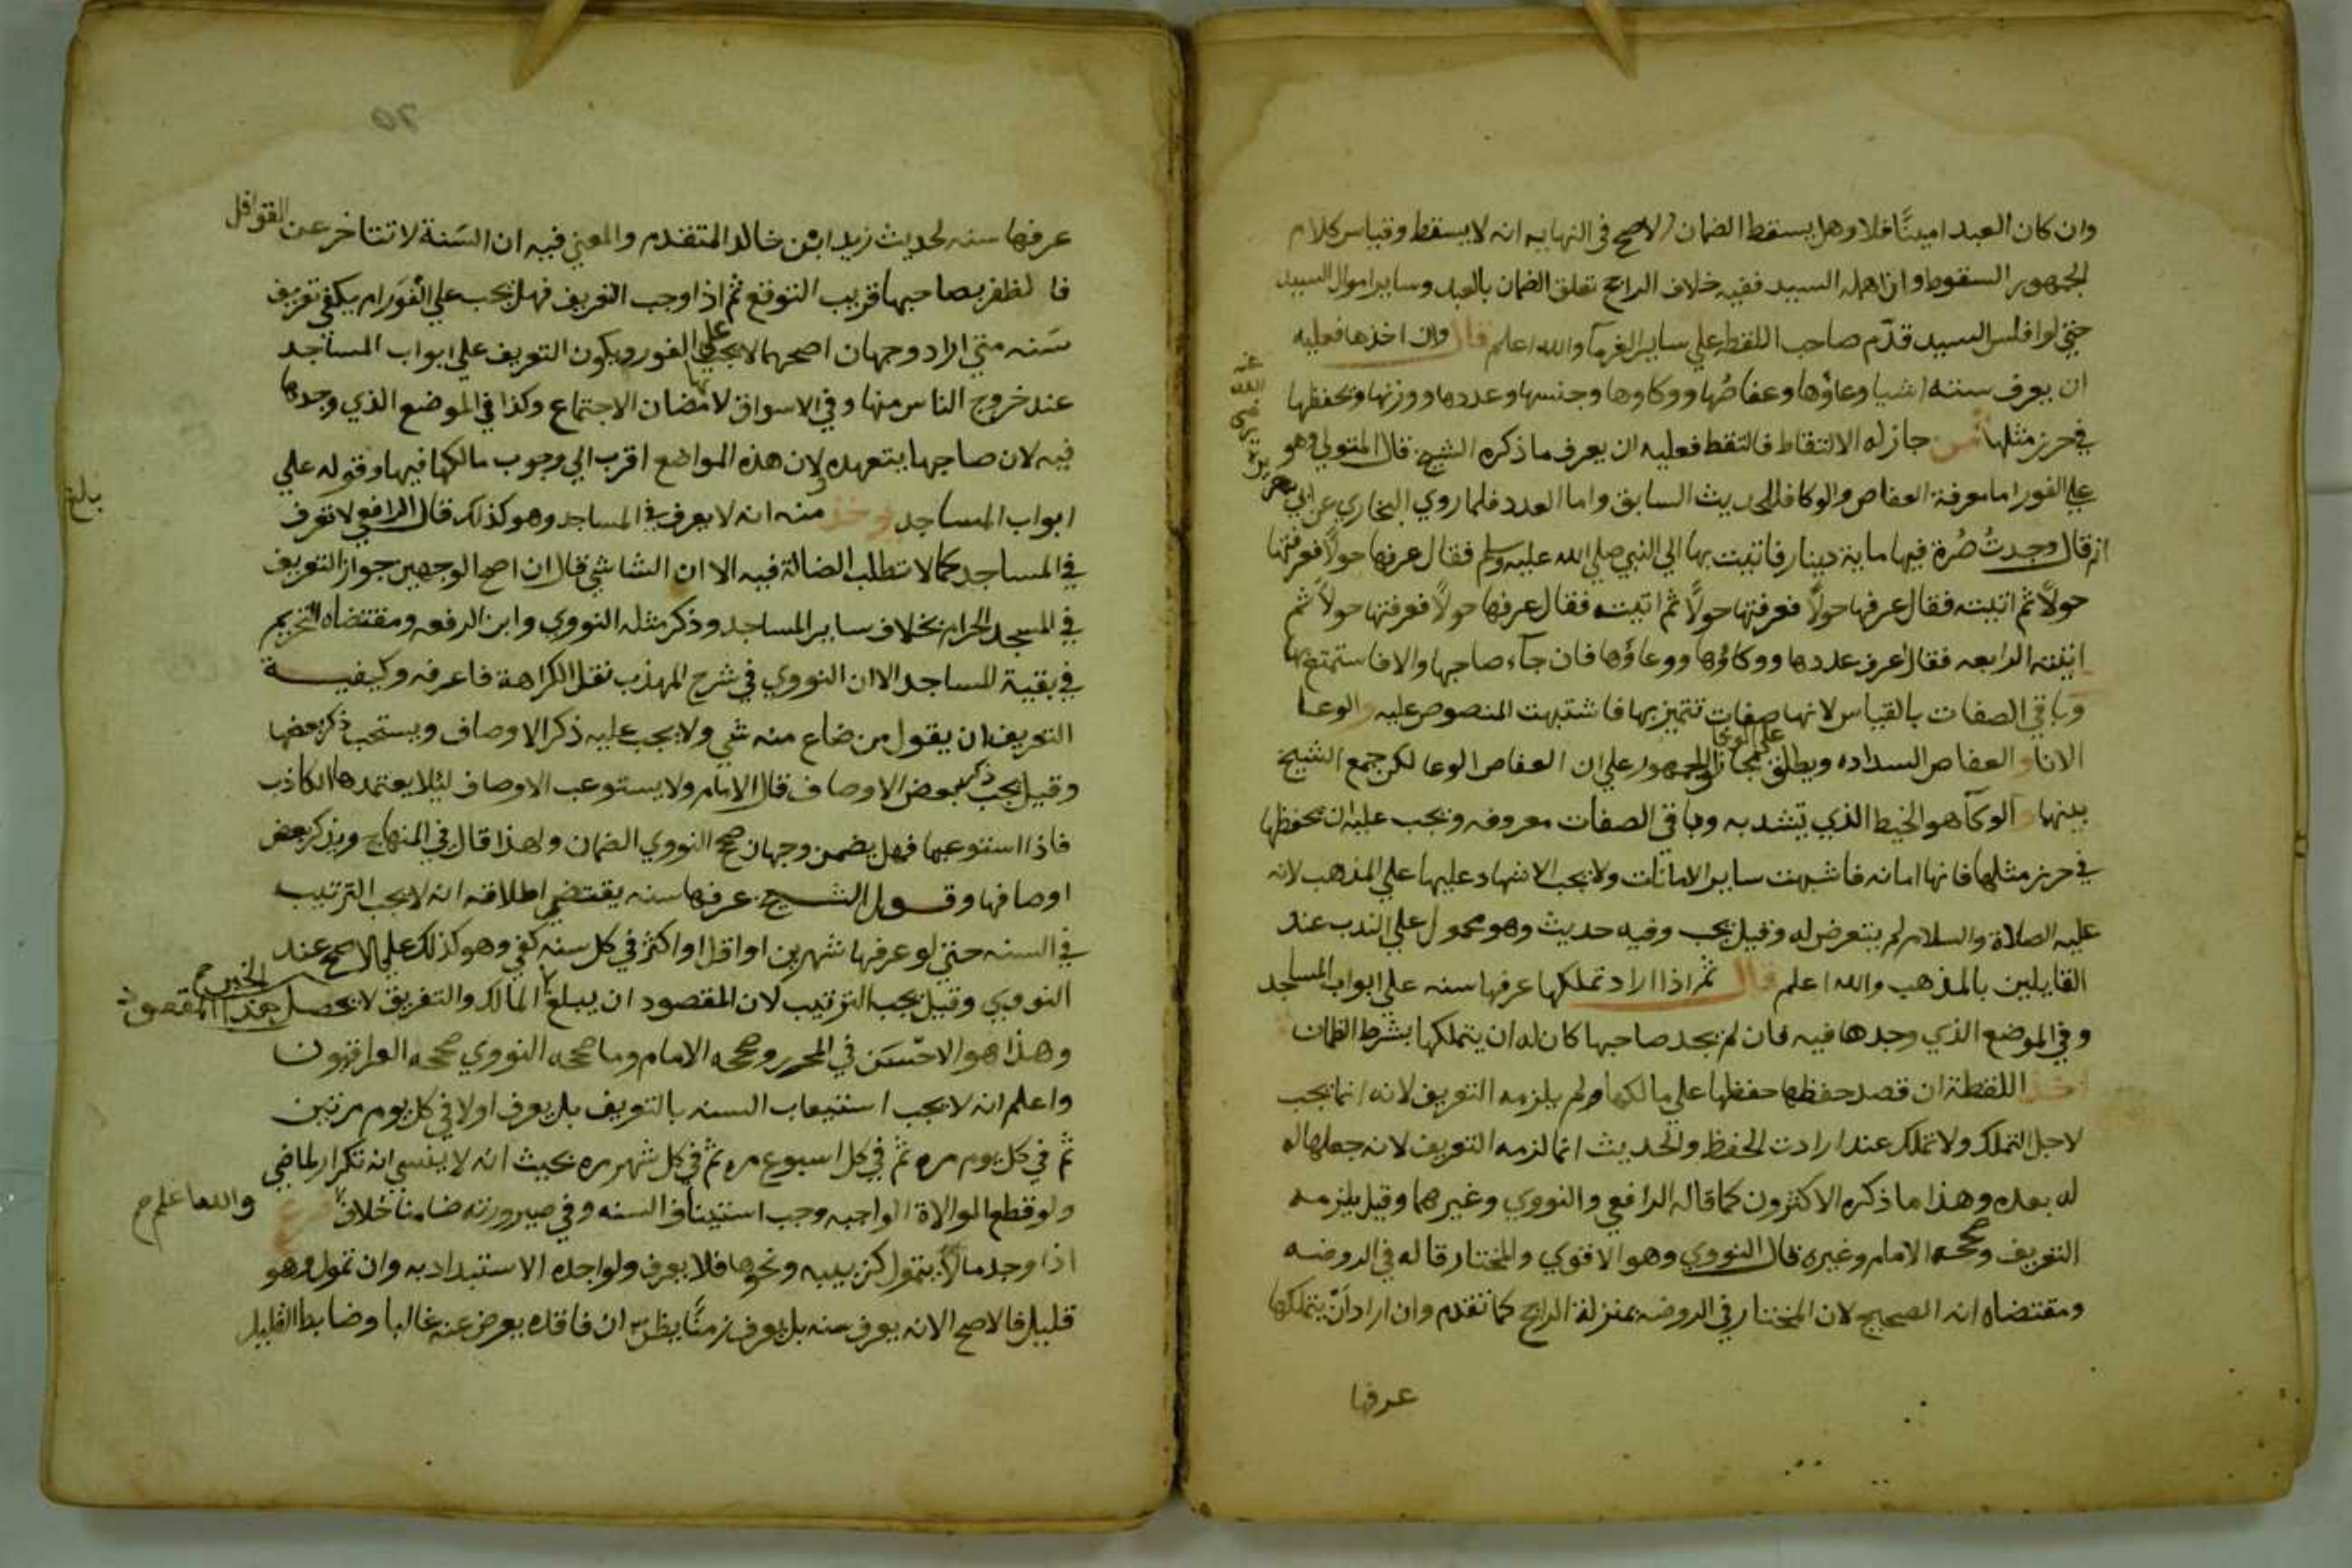 وان كان العبد امينًا فلا وهل يسقط الضمان الاصح في النهايه انه لا يسقط وقياس كلام
الجمهور السقوط وان اهمله السيد ففيه خلاف الراجح تعلق الضمان بالعبد وساير اموال السيد
حتي لو افلس السيد قدّم صاحب اللقطه علي ساير الغرمآ والله اعلم قال وان اخذها فعليه
ان يعرف سته اشيا وعاؤها وعفاصُها ووكاوها وجنسها وعددها ووزنها ويحفظها
في حرز مثلها من جاز له الالتقاط فالتقط فعليه ان يعرف ما ذكره الشيخ قال المتولي وهو
علي الفور اما معرفة العفاص والوكا فللحديث السابق واما العدد فلما روي البخاري عن ابي
انه قال وجدتُ صُرة فيها ماية دينار فاتيت بها الي النبي صلي الله عليه وسلم فقال عرفها حولًا فعرفتها
حولًا ثم اتيته فقال عرفها حولًا فعرفتها حولًا ثم اتيته فقال عرفها حولًا فعرفتها حولًا ثم
اتيته الرابعه فقال اعرف عددها ووكاؤها ووعاؤها فان جآء صاحبها والا فاستمتع بها
وباقي الصفات بالقياس لانها صفات تتميز بها فاشتبهت المنصوص عليه والوعا
الانا و العفاص السداده ويطلق مجازا علي الوعا والجمهور علي ان العفاص الوعا لكن جمع الشيخ
بينهما و الوكآ هو الخيط الذي يتشد به وباقي الصفات معروفه ويجب عليه ان يحفظها
في حرز مثلها فانها امانه فاشبهت ساير الامانات ولا يجب الاشهاد عليها علي المذهب لانه
عليه الصلاة والسلام لم يتعرض له وقيل يجب وفيه حديث وهو محمول علي الندب عند
القايلين بالمذهب والله اعلم قال ثم اذا اراد تملكها عرفها سنه علي ابواب المساجد
وفي الموضع الذي وجدها فيه فان لم يجد صاحبها كان له ان يتملكها بشرط الضمان
اخذ اللقطة ان قصد حفظها حفظها علي مالكها ولم يلزمه التعريف لانه انما يجب
لاجل التملك ولا تملك عند ارادت الحفظ والحديث انما الزمه التعريف لانه جعلها له
له بعده وهذا ما ذكره الاكثرون كما قاله الرافعي والنووي وغيرهما وقيل يلزمه
التعريف وصححه الامام وغيره قال النووي وهو الاقوي والمختار قاله في الروضه
ومقتضاه انه الصحيح لان المختار في الروضه بمنزلة الراجح كما تقدم وان اراد ان يتملكها
عرفها
عرفها سنه لحديث زيد ابن خالد المتقدم والمعني فيه ان السَنة لا تتاخر عن القوافل
فا لظفر بصاحبها قريب التوقع ثم اذا وجب التعريف فهل يجب علي الفَور ام يكفي تعريف
سَنه متي اراد وجهان اصحهما لا يجب علي الفور ويكون التعريف علي ابواب المساجد
عند خروج الناس منها وفي الاسواق لانها مضان الاجتماع وكذا في الموضع الذي وجدها
فيه لان صاحبها يتعهده ولان هذه المواضع اقرب الي وجوب مالكها فيها وقوله علي
ابواب المساجد يوخذ منه انه لا يعرف في المساجد وهو كذلك قال الرافعي لا تعرف
في المساجد كما لا تطلب الضالة فيه الا ان الشاشي قال ان اصح الوجهين جواز التعريف
في المسجد الحرام بخلاف ساير المساجد وذكر مثله النووي وابن الرفعه ومقتضاه التحريم
في بقية المساجد الا ان النووي في شرح المهذب نقل الكراهة فاعرفه وكيفيـــة
التعريف ان يقول من ضاع منه شي ولا يجب عليه ذكر الاوصاف ويستحب ذكر بعضها
وقيل يجب ذكر بعض الاوصاف قال الامام ولا يستوعب الاوصاف ليلا يعتمدها الكاذب
فاذا استوعبها فهل يضمن وجهان صحح النووي الضمان ولهذا قال في المنهاج ويذكر بعض
اوصافها وقــول الشــيخ عرفها سنه يقتضي اطلاقه انه لا يجب الترتيب
في السنه حتي لو عرفها شهرين او اقل او اكثر في كل سنه كفي وهو كذلك علي الاصح عند
النووي وقيل يجب الترتيب لان المقصود ان يبلغ المالك والتفريق لا يحصل هذا المقصود
وهذا هو الاحسَن في المحرر وصححه الامام وما صححه النووي صححه العراقيون
واعلم انه لا يجب استيعاب السنه بالتعريف بل يعرف اولا في كل يوم مرتين
ثم في كل يوم مره ثم في كل اسبوع مره ثم في كل شهر مره بحيث انه لا ينسي انه تكرار لماضي
ولو قطع الموالاة الواجبه وجب استيناف السنه وفي صيرورته ضامنا خلاف والله اعلم فرع
اذا وجد مالا يتمول كزبيبه ونحوها فلا يعرف ولواجده الاستبداد به وان تمول وهو
قليل فالاصح الانه يعرف سنه بل يعرف زمنًا يظن ان فاقده يعرض عنه غالبا وضابط القليل
بلغ